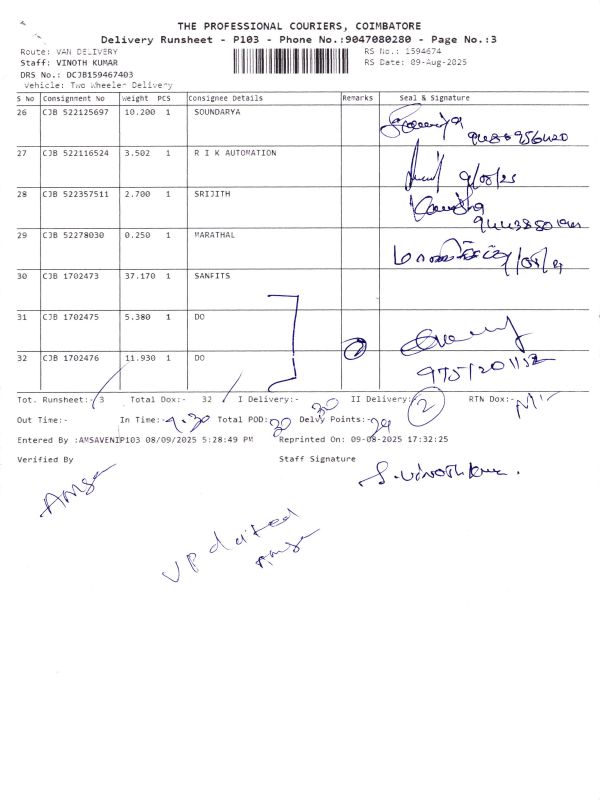 THE PROFESSIONAL COURIERS, COIMBATORE
Delivery Runsheet - P103 - Phone No.:9047080280 - Page No.:3
Route: VAN DELIVERY RS No.: 1594674
Staff: VINOTH KUMAR RS Date: 09-Aug-2025
DRS No.: DCJB159467403
Vehicle: Two Wheeler Delivery
S No Consignment No Weight PCS Consignee Details Remarks Seal & Signature
26 CJB 522125697 10.200 1 SOUNDARYA
27 CJB 522116524 3.502 1 R I K AUTOMATION 9/08/25
28 CJB 522357511 2.700 1 SRIJITH
29 CJB 52278030 0.250 1 MARATHAL
30 CJB 1702473 37.170 1 SANFITS
31 CJB 1702475 5.380 1 DO
32 CJB 1702476 11.930 1 DO 2
Tot. Runsheet:- 3 Total Dox:- 32 I Delivery:- 30 II Delivery:- 2 RTN Dox:-
Out Time:- In Time:- 9.30 Total POD: 30 Delvy Points:- 29
Entered By :AMSAVENIP103 08/09/2025 5:28:49 PM Reprinted On: 09-08-2025 17:32:25
Verified By Staff Signature
Amsa S.Vinoth Kumar.
Updated
Amsa